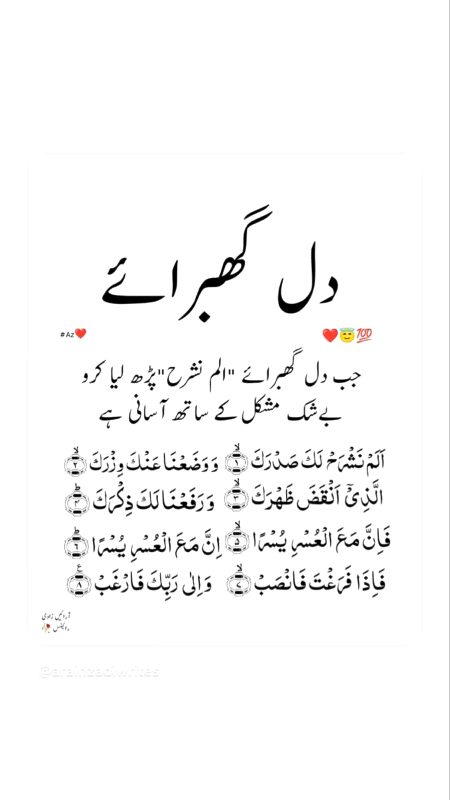 دل گھبرائے
#Az❤️
❤️😇💯
جب دل گھبرائے "الم نشرح" پڑھ لیا کرو
بےشک مشکل کے ساتھ آسانی ہے
اَلَمۡ نَشۡرَحۡ لَكَ صَدۡرَكَۙ‏ ﴿۱﴾ وَوَضَعۡنَا عَنۡكَ وِزۡرَكَۙ‏ ﴿۲﴾
الَّذِىۡۤ اَنۡقَضَ ظَهۡرَكَۙ‏ ﴿۳﴾ وَرَفَعۡنَا لَكَ ذِكۡرَكَؕ‏ ﴿۴﴾
فَاِنَّ مَعَ الۡعُسۡرِ يُسۡرًاۙ‏ ﴿۵﴾ اِنَّ مَعَ الۡعُسۡرِ يُسۡرًاؕ‏ ﴿۶﴾
فَاِذَا فَرَغۡتَ فَانۡصَبۡۙ‏ ﴿۷﴾ وَاِلٰى رَبِّكَ فَارۡغَبۡ ﴿۸﴾
آرائیں زادی
@arainzadiwrites